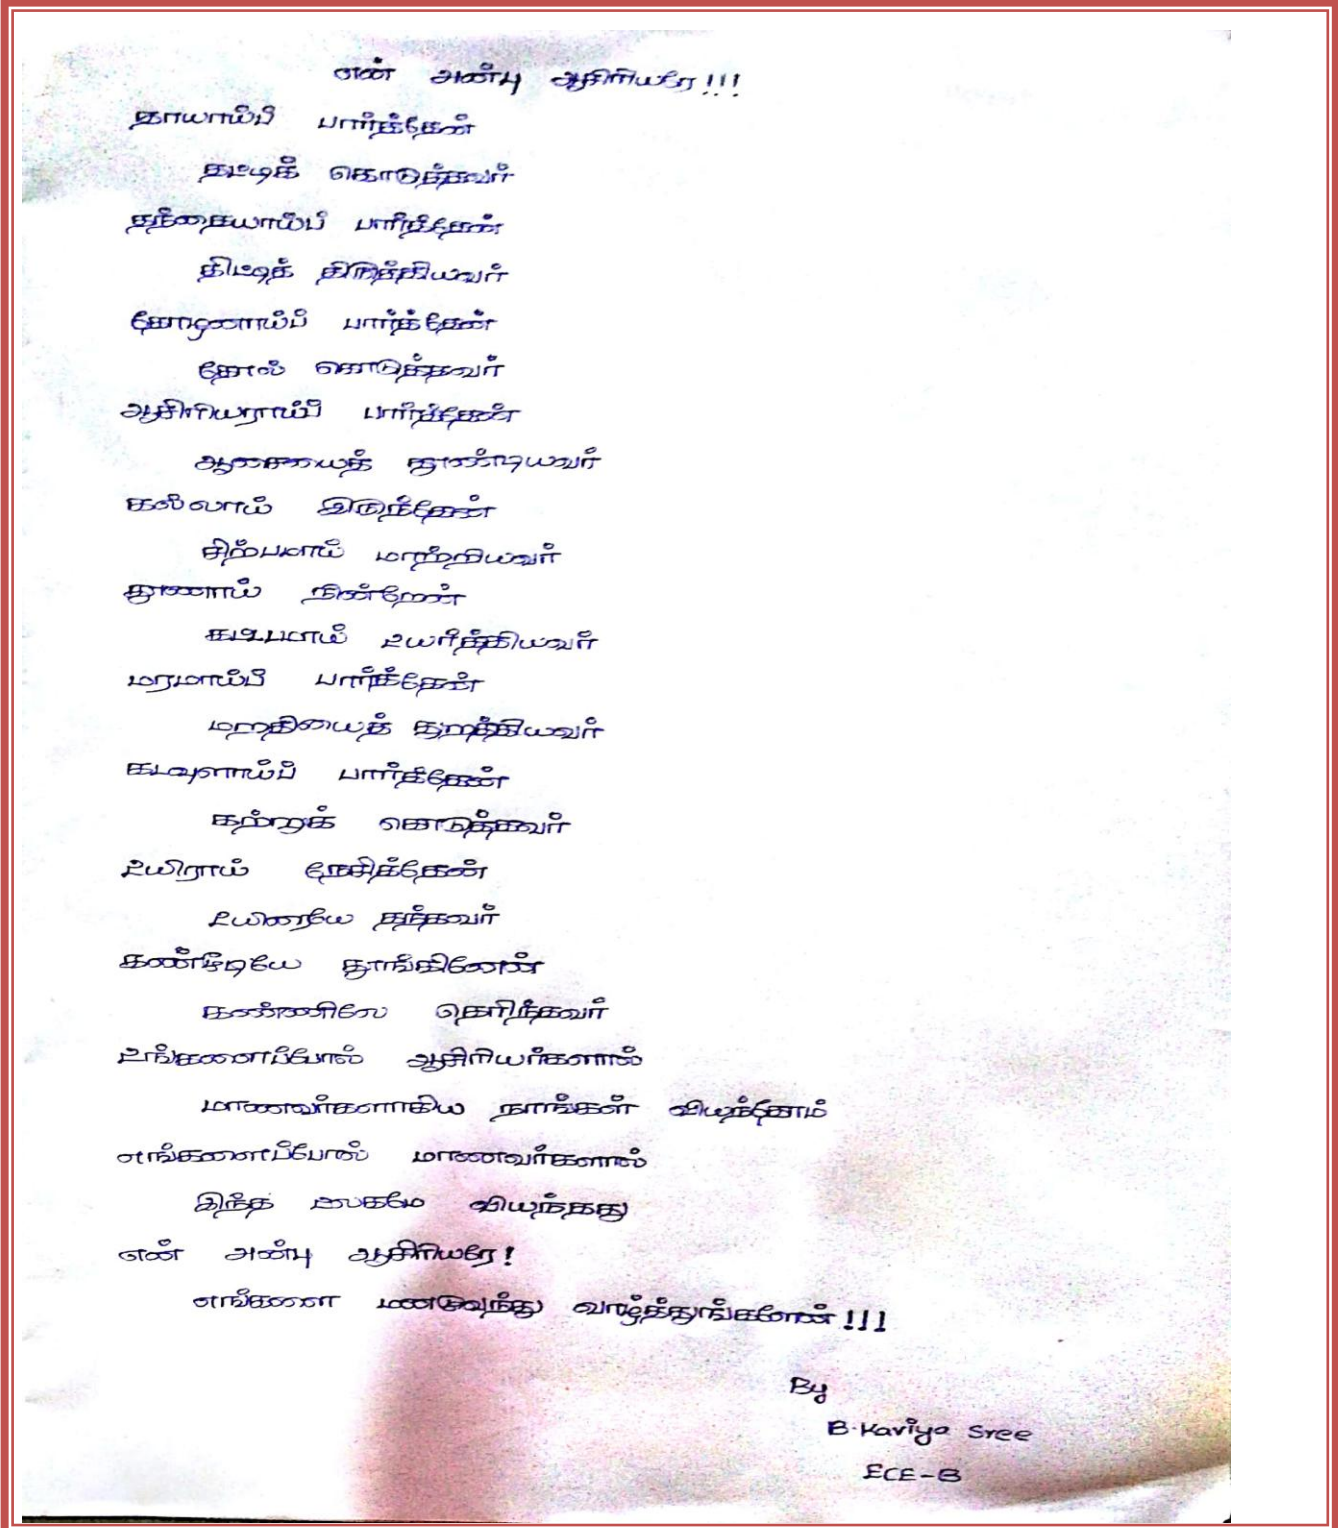 என் அன்பு ஆசிரியரே!!!
தாயாய்ப் பார்த்தேன்
தட்டிக் கொடுத்தவர்
தந்தையாய்ப் பார்த்தேன்
திட்டித் திருத்தியவர்
தோழனாய்ப் பார்த்தேன்
தோல் கொடுத்தவர்
ஆசிரியராய்ப் பார்த்தேன்
ஆசையைத் தூண்டியவர்
கல்லாய் இருந்தேன்
சிற்பமாய் மாற்றியவர்
தூணாய் நின்றேன்
கூடமாய் உயர்த்தியவர்
மரமாய்ப் பார்த்தேன்
மறதியைத் துறத்தியவர்
கடவுளாய்ப் பார்த்தேன்
கற்றுக் கொடுத்தவர்
உயிராய் நேசித்தேன்
உயிரையே தந்தவர்
கண்மூடியே தூங்கினேன்
கண்ணிலே தெரிந்தவர்
உங்களைப்போல் ஆசிரியர்களால்
மாணவர்களாகிய நாங்கள் வியந்தோம்
எங்களைப்போல் மாணவர்களால்
இந்த உலகமே வியந்தது
என் அன்பு ஆசிரியரே!
எங்களை மனமுவந்து வாழ்த்துங்களேன்!!!
By
B.Kaviya Sree
ECE-B